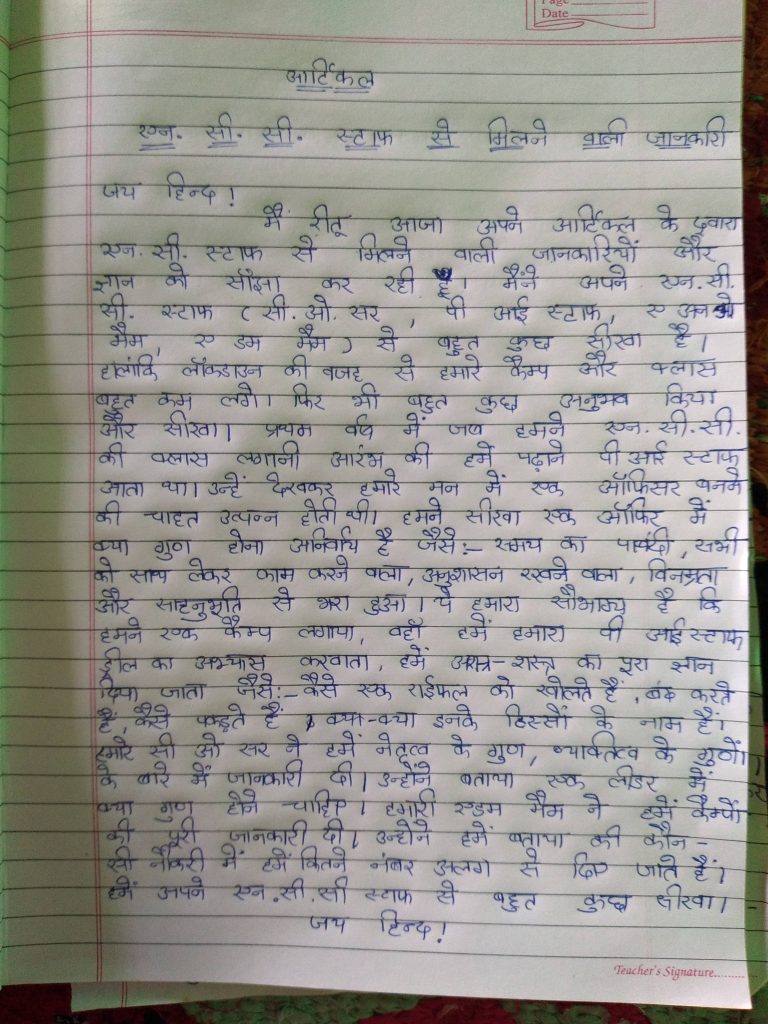 Page
Date
आर्टिकल
एन. सी. सी. स्टाफ से मिलने वाली जानकारी
जय हिन्द!
मैं रीतू आजा अपने आर्टिकल के द्वारा
एन. सी. स्टाफ से मिलने वाली जानकारियों और
ज्ञान को साँझा कर रही हूँ। मैंने अपने एन. सी.
सी. स्टाफ (सी. ओ. सर , पी आई स्टाफ, ए
मैम, ए डम मैम) से बहुत कुछ सीखा है।
हालांकि लॉकडाउन की वजह से हमारे कैम्प और क्लास
बहुत कम लगे। फिर भी बहुत कुछ अनुभव किया
और सीखा। प्रथम वर्ष में जब हमने एन. सी. सी.
की क्लास लगानी आरंभ की हमें पढ़ाने पी आई स्टाफ
आता था। उन्हें देखकर हमारे मन में एक ऑफिसर बनने
की चाहत उत्पन्न होती थी। हमने सीखा एक ऑफिर में
क्या गुण होना अनिवार्य है जैसे:- समय का पाबंदी, सभी
को साथ लेकर काम करने वाला, अनुशासन रखने वाला, विनम्रता
और साहनुभूति से भरा हुआ। ये हमारा सौभाग्य है कि
हमने एक कैम्प लगाया, वहाँ हमें हमारा पी आई स्टाफ
ड्रील का अभ्यास करवाता, हमें अस्त्र-शस्त्र का पूरा ज्ञान
दिया जाता जैसे:- कैसे एक राईफल को खोलते हैं, बंद करते
हैं, कैसे पकड़ते हैं, क्या-क्या इनके हिस्सों के नाम हैं।
हमारे सी ओ सर ने हमें नेतृत्व के गुण, व्यक्तित्व के गुणों
के बारे में जानकारी दी। उन्होंने बताया एक लीडर में
क्या गुण होने चाहिए। हमारी एडम मैम ने हमें कैम्पों
की पूरी जानकारी दी। उन्होंने हमें बताया की कौन-
सी नौकरी में हमें कितने नंबर अलग से दिए जाते हैं।
हमें अपने एन. सी. सी स्टाफ से बहुत कुछ सीखा।
जय हिन्द!
Teacher's Signature.........